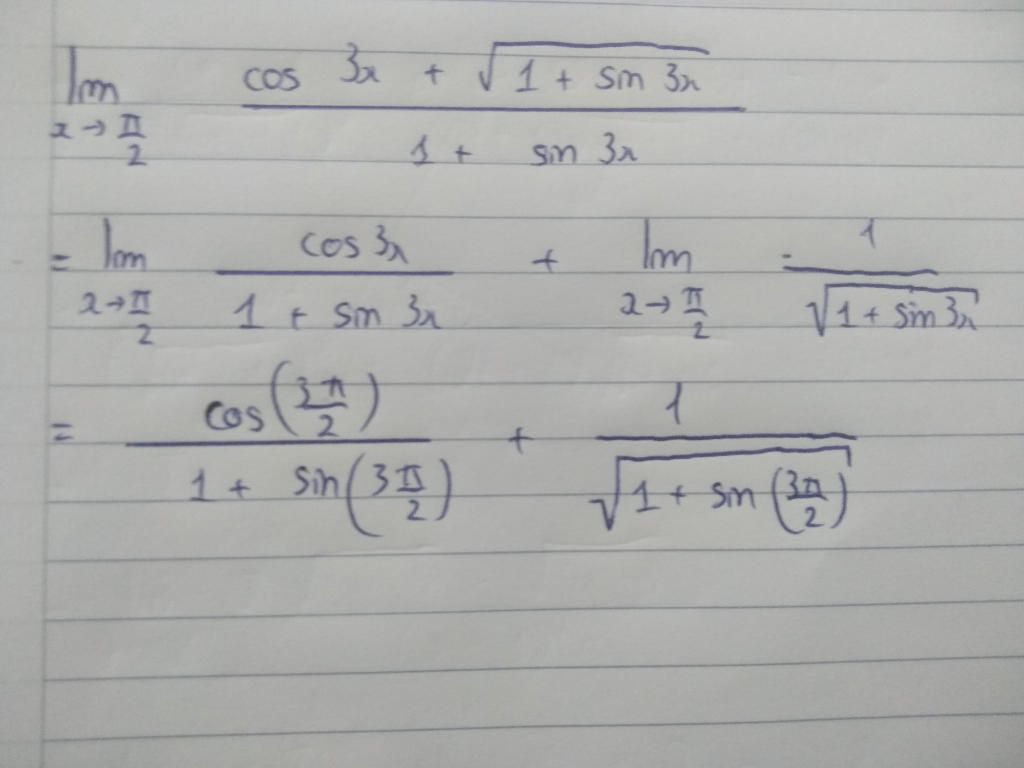 lim x→π/2 (cos 3x + √(1 + sin 3x)) / (1 + sin 3x)
= lim x→π/2 cos3x / (1 + sin 3x) + lim x→π/2 1 / √(1 + sin 3x)
= cos(3π/2) / (1 + sin(3π/2)) + 1 / √(1 + sin(3π/2))